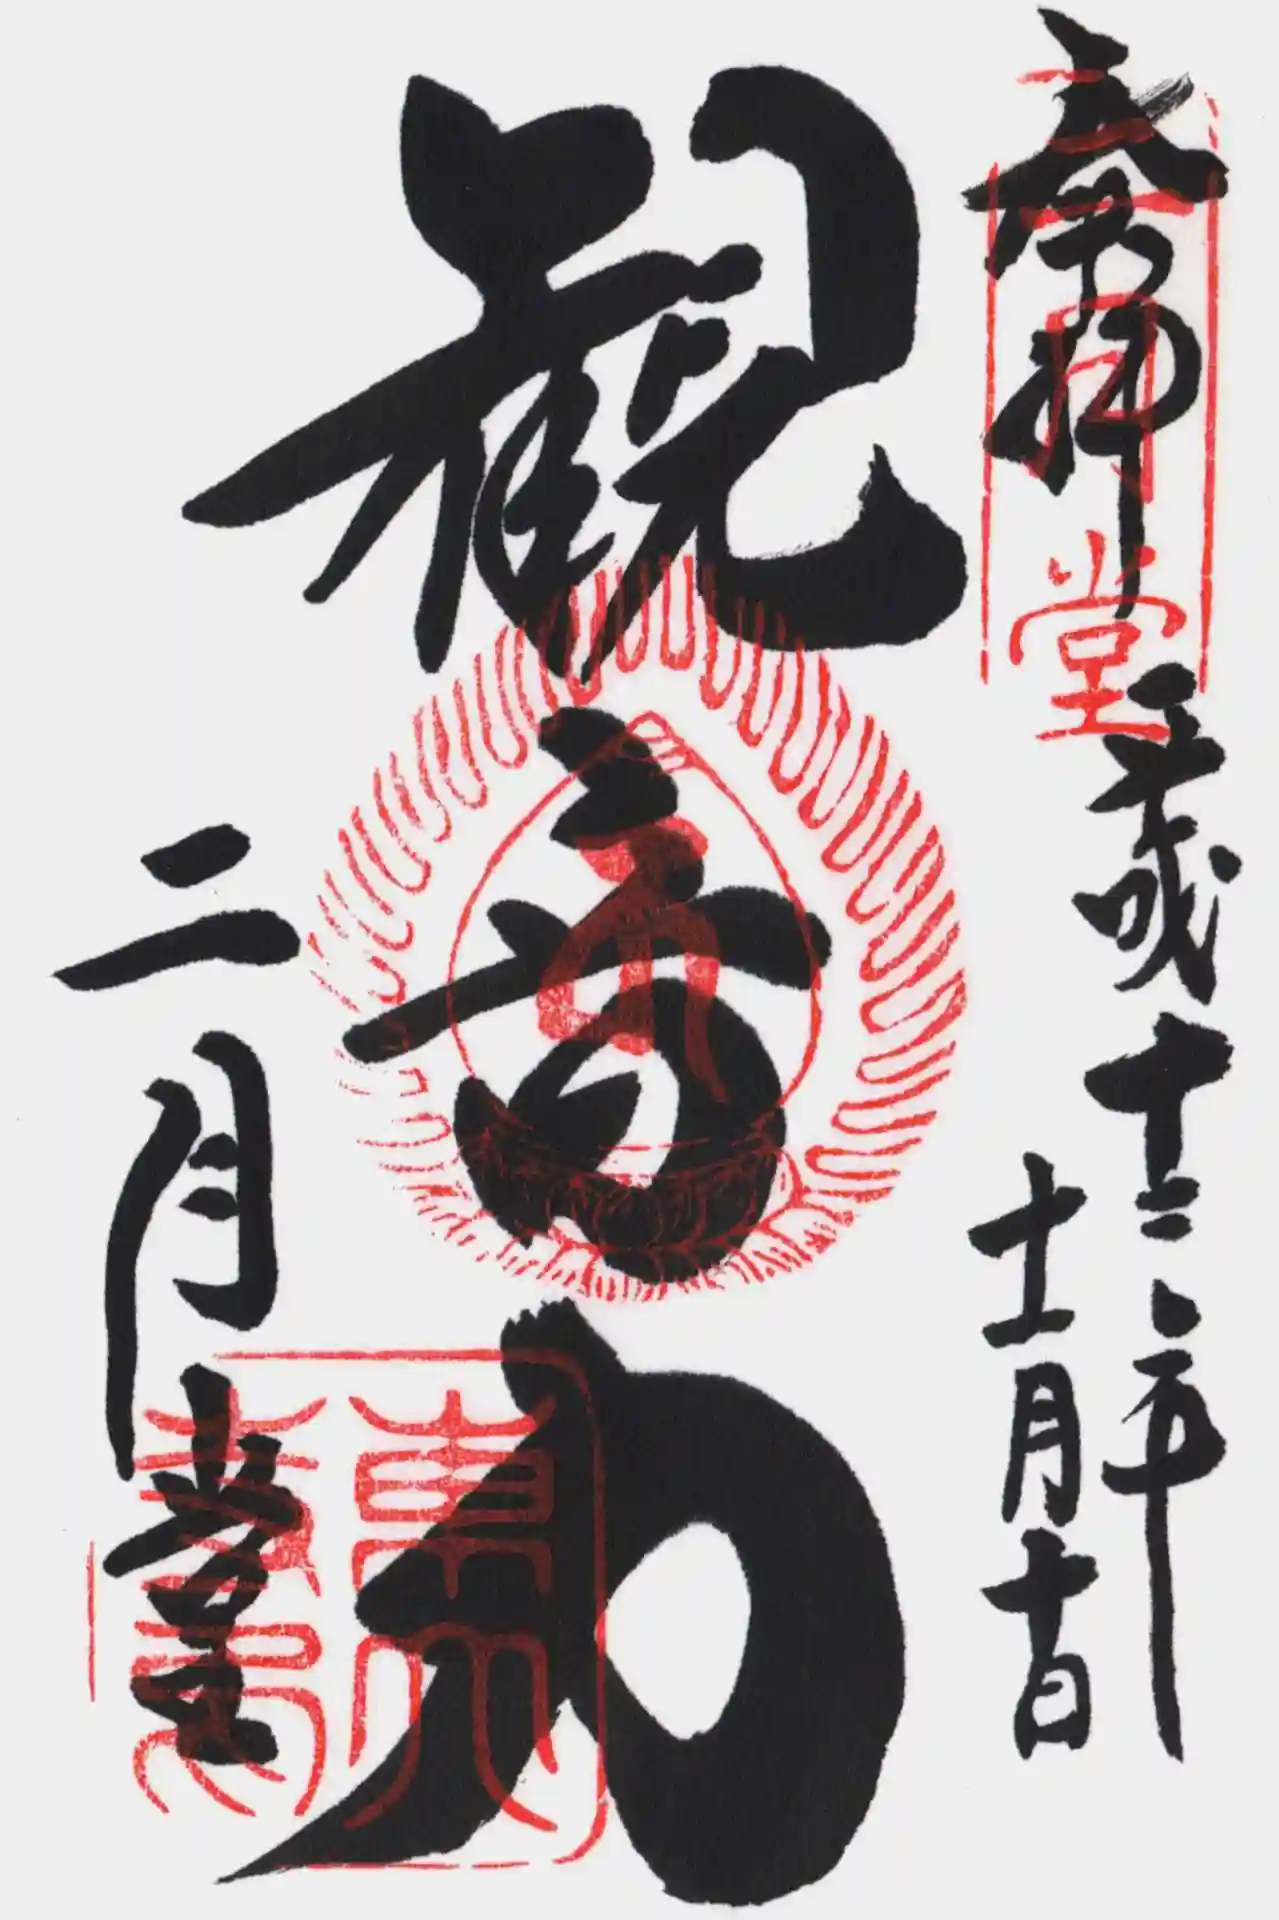 奉拝
平成十二年
十一月十日
観音力
二月堂
二月堂